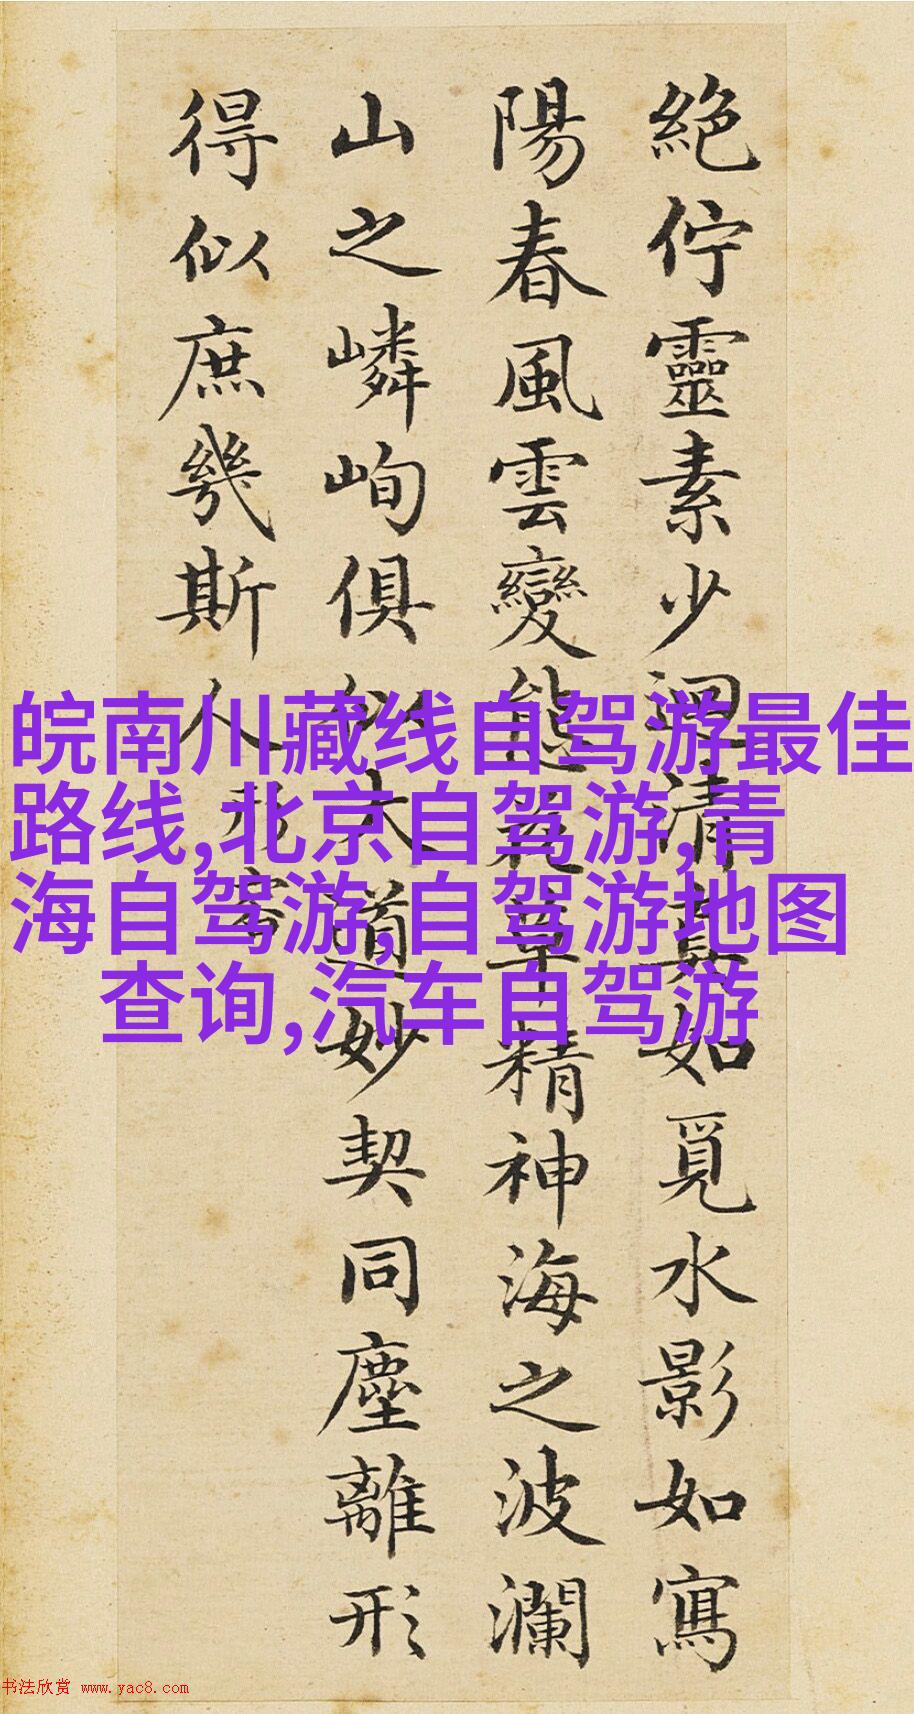 絶佇靈素少迴清真如覓水影如寫
陽春風雲變態花草精神海之波瀾
山之嶙峋俱似大道妙契同塵離形
得似庶幾斯人
皖南川藏线自驾游最佳
路线,北京自驾游,青
海自驾游,自驾游地图
查询,汽车自驾游
书法欣赏 www.yac8.com